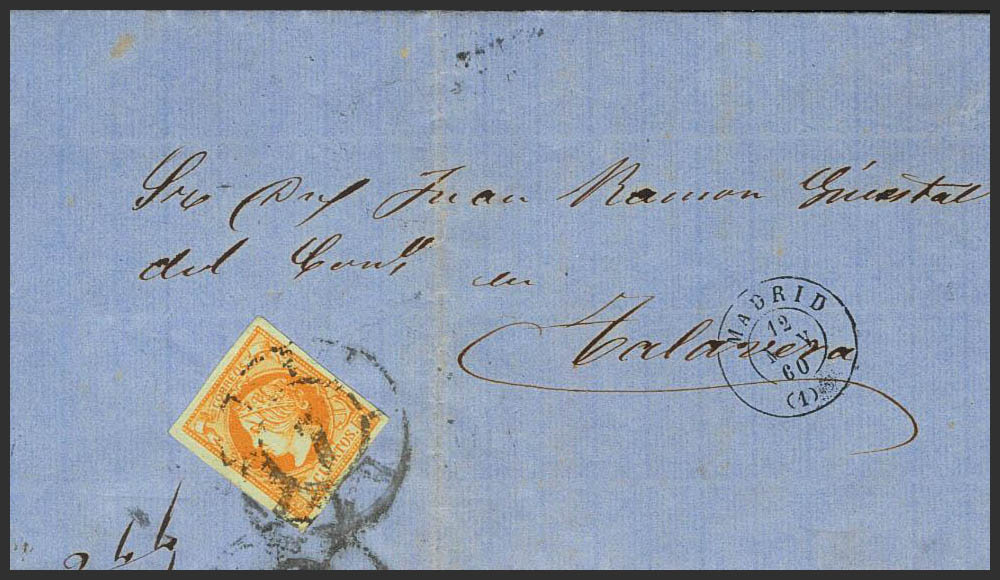 Sr Dn Juan Ramon Ginestal
del Com.º en
Talavera
MADRID
12
60
(1)
CORREOS
CUARTOS.